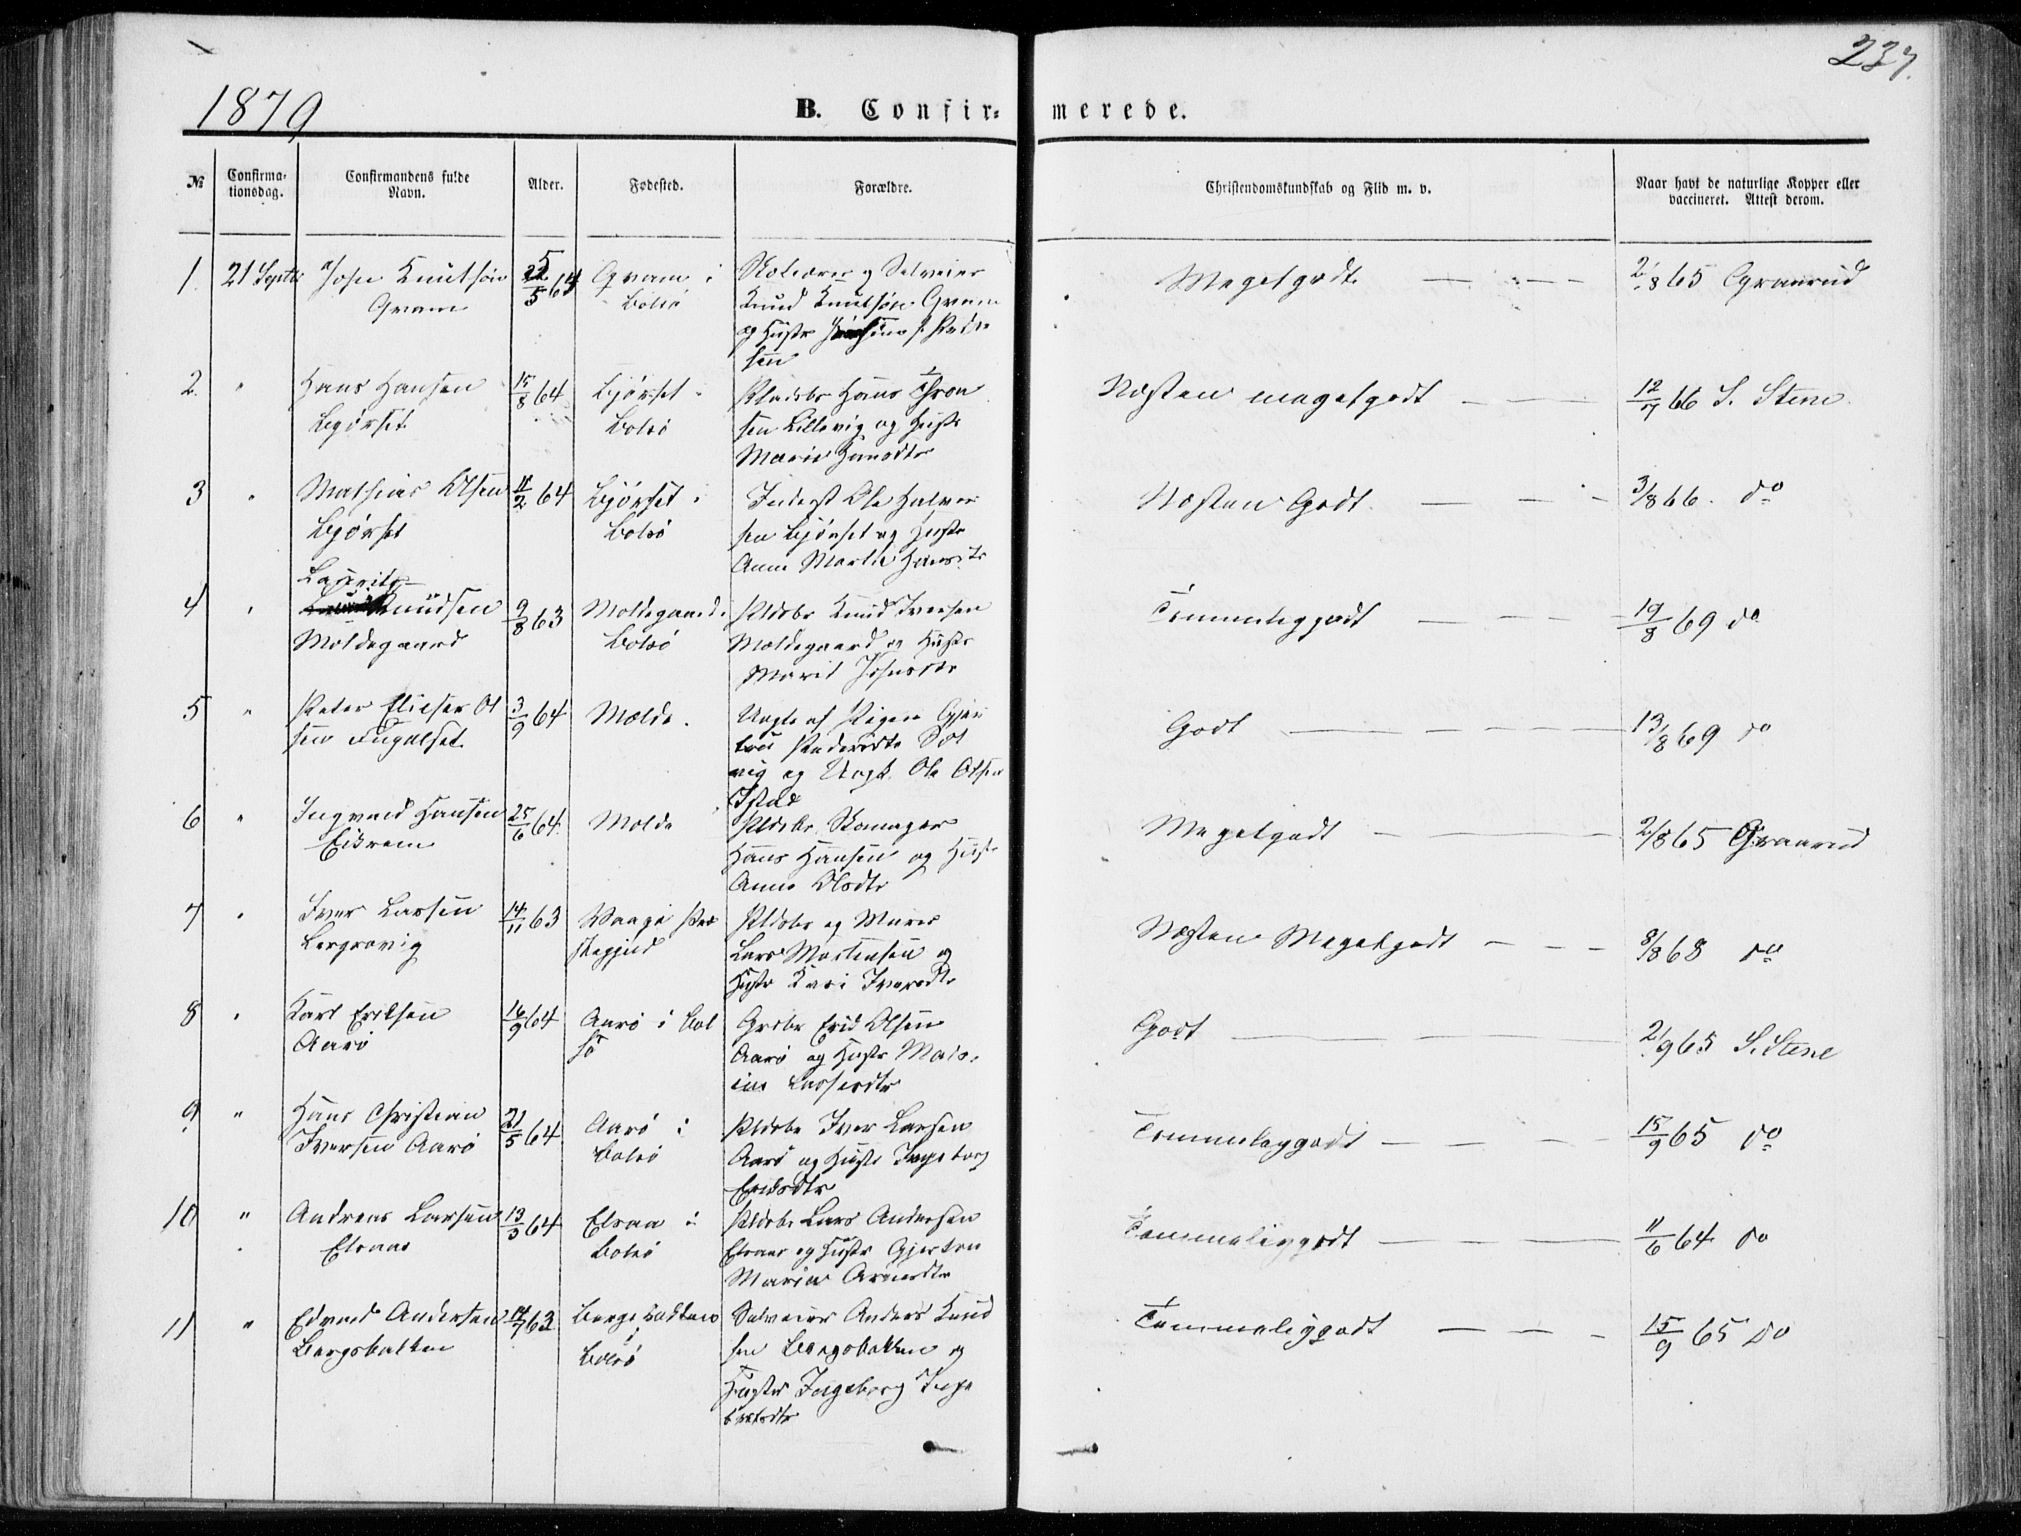 237.
1879
B. Confir- merede.
№
Confirma-
tionsdag.
Confirmandens fulde
Navn.
Alder.
Fødested.
Forældre.
Christendomskundskab og Flid m. v.
Naar havt de naturlige Kopper eller
vaccineret. Attest derom.
1. 21 Septbr John Knutsøn
Gram
5/64
Gram i
Bolsø
og Selveier
Knud Knutsøn Gram
og Hustr
Megetgodt
2/8 65 Graarud
2. " Hans Hansen
Bjørset
15/8 64
Bjørset i
Bolsø
Pladsbr Hans Thron
sen Lillevig og Hustr
Marie Hansdtr
Næsten megetgodt
12/7 66 S. Stene
3 " Mathias Olsen
Bjørset
11/2 64
Bjørset i
Bolsø
Inderst Ole Halvor
sen Bjørset og Hustr
Anne Martha Hansdtr
Næsten Godt
3/8 66. do
4 " Laurits
Knudsen
Moldegaard
9/8 63
Moldegaard i
Bolsø
Pldsbr Knud Iversen
Moldegaard og Hustr
Marit Johnsdtr
Temmeliggodt
19/8 69 do
5 " Peter Elieser Ol
sen Fugelset
3/9 64
Molde.
Uægte af Pigen Gjer
tru Pedersdtr Sol
vig og Ungk. Ole Olsen
Istad
Godt
13/8 69 do
6 " Ingvald Hansen
Eikrem
25/6 64.
Molde
Pldsbr Skomager
Hans Hansen og Hustr
Anne Olsdtr
Megetgodt
2/8 65 Graarud
7 " Iver Larsen
Bergsvig
14/11 63
Vaage Præ
stegjeld
Pldsbr og Murer
Lars Mortensen og
Hustr Kari Iversdtr
Næsten Megetgodt
8/8 68 do
8 " Karl Eriksen
Aarø
16/9 64
Aarø i Bol
sø
Grdbr Erik Olsen
Aarø og Hustr
Larsesdtr
Godt
2/9 65 S. Stene
9 " Hans Christian
Iversen Aarø
21/5 64
Aarø i
Bolsø
Pldsbr Iver Larsen
Aarø og Hustr Ingeborg
Eriksdtr
Temmeliggodt
15/9 65 do
10 " Andreas Larsen
Elsaas
13/3 64
Elsaa i
Bolsø
Pldsbr Lars Andersen
Elsaas og Hustr Gjertru
Maria
Temmeliggodt
11/6 64 do
11 " Edvard Andersen
Bergsbakken
14/7 63
Bergsbakken
i
Bolsø
Selveier Anders Knud
sen Bergsbakken og
Hustr Ingeborg Inge
britsdtr
Temmeliggodt
15/9 65 do